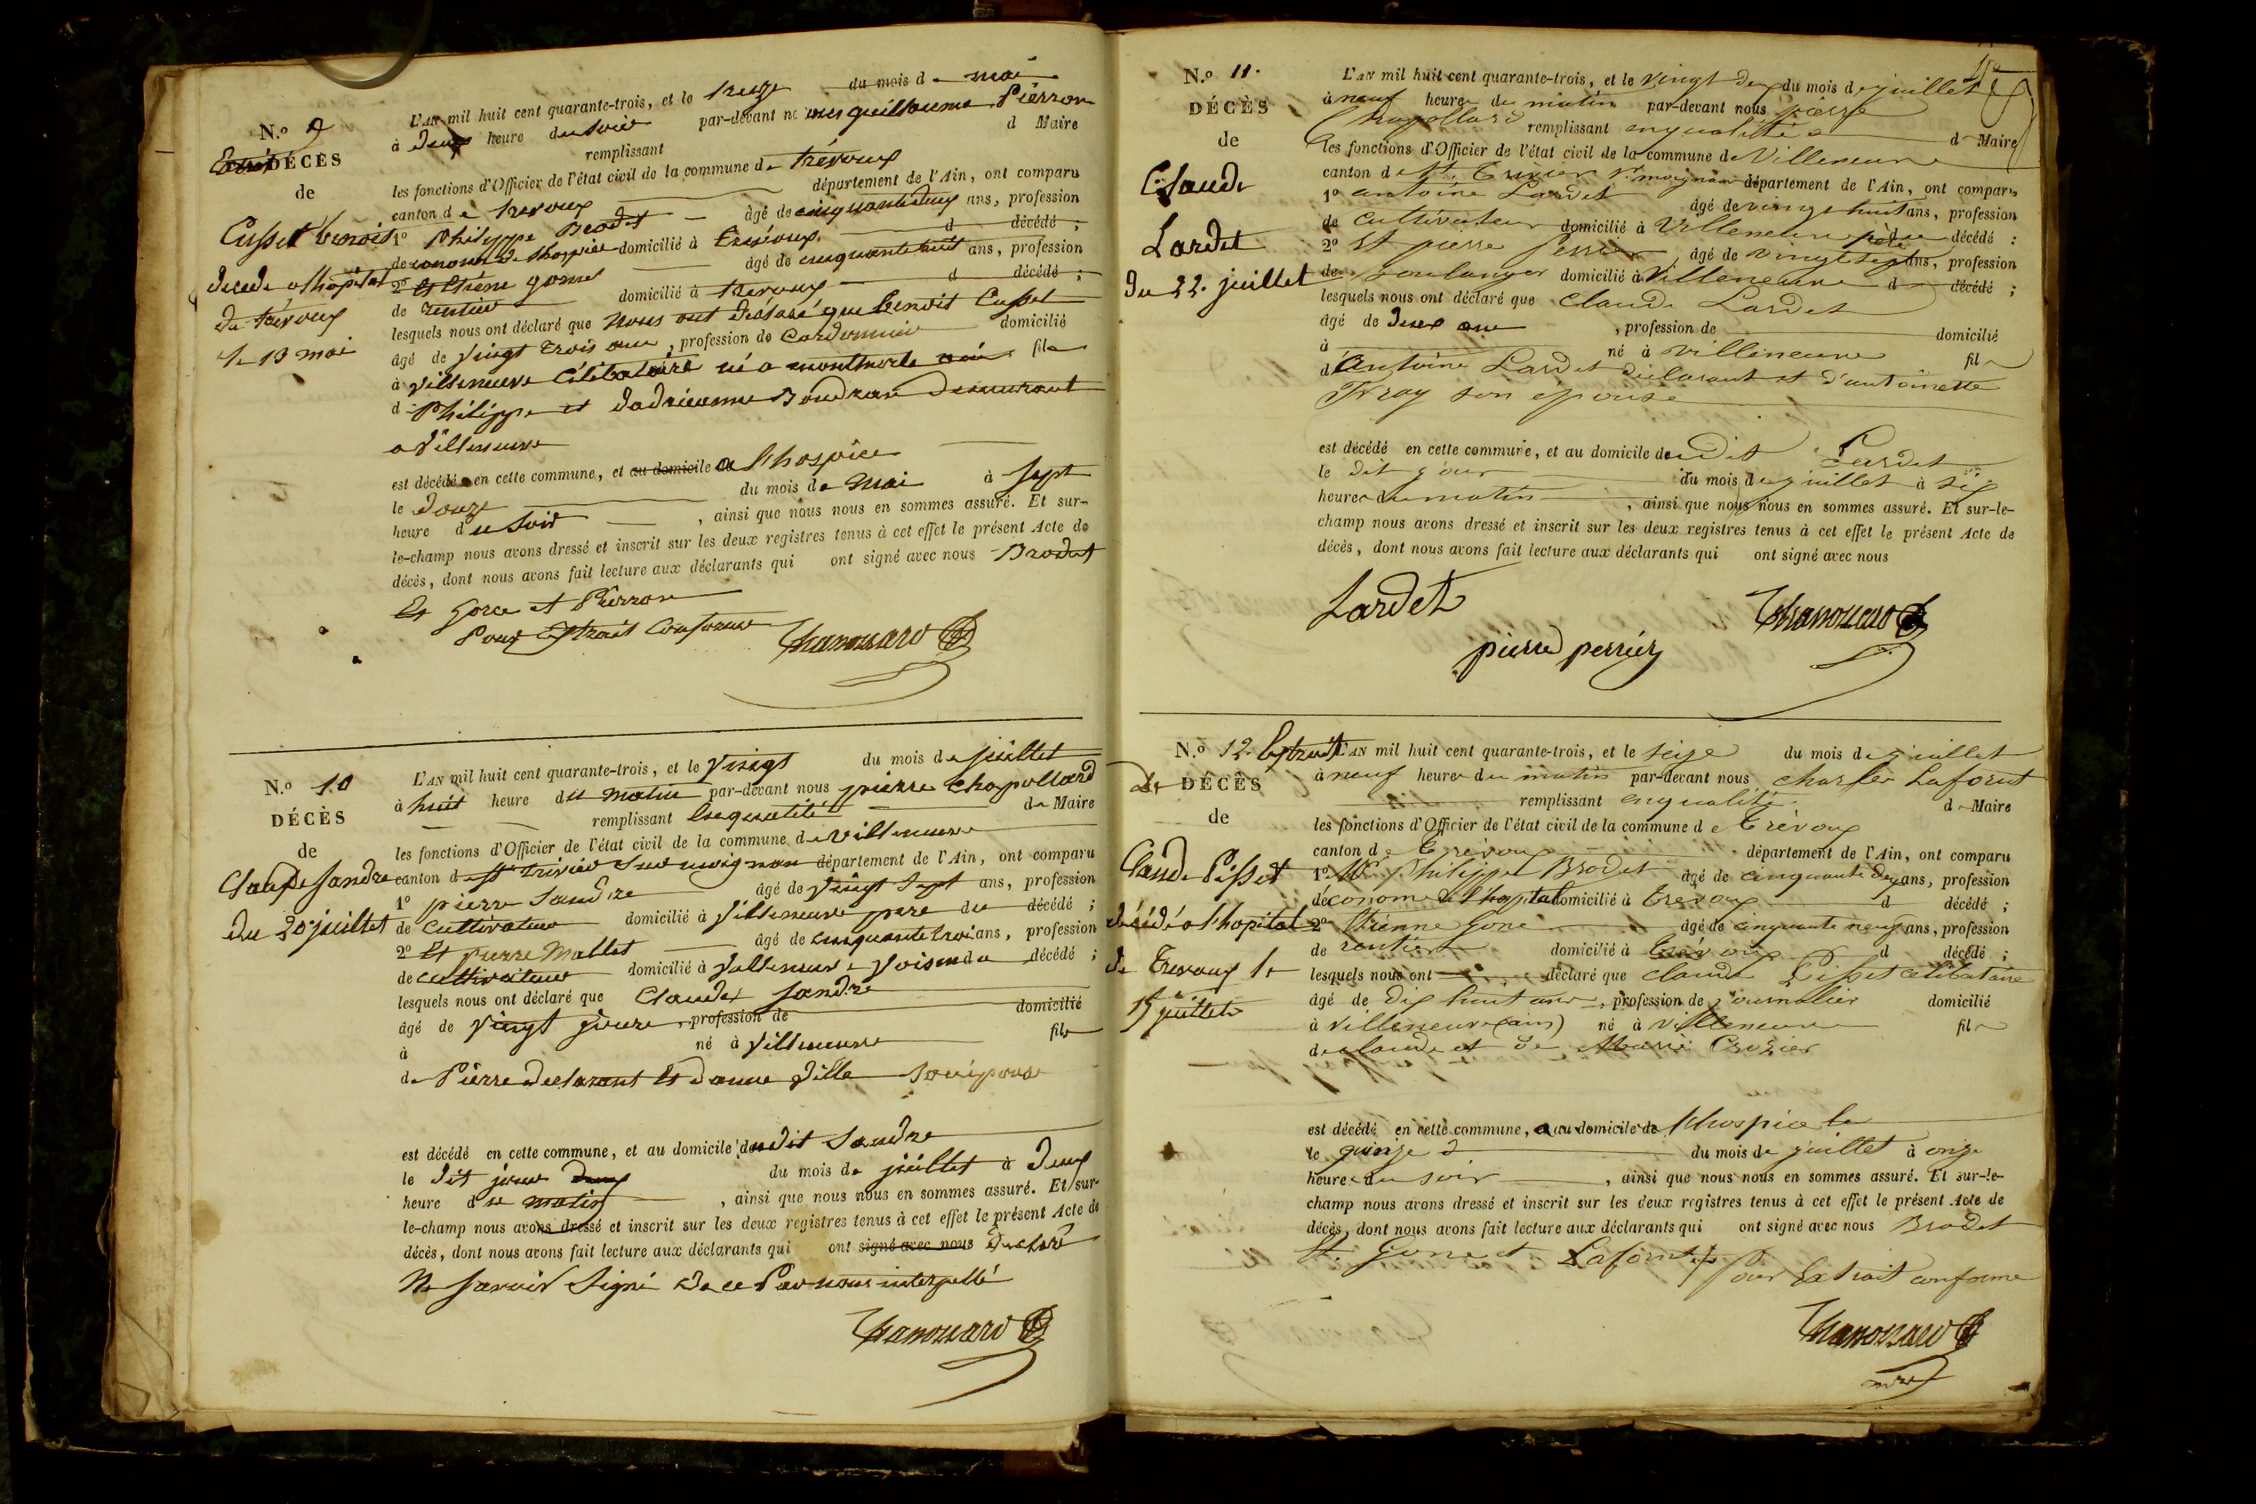 N.º 9
Extrait DÉCÈS
de
Cusset benoit
décédé a l'hôpital
de trévoux
le 13 mai
L'AN mil huit cent quarante-trois, et le treize du mois de mai
à deux heure du soir par-devant nous guillaume Pierron
remplissant d Maire
les fonctions d'Officier de l'état civil de la commune de trévoux
canton de trevoux département de l'Ain, ont comparu
1º Philippe Brodet âgé de cinquante deux ans, profession
de econome de l'hospice domicilié à trevoux d décédé ;
2º et Etiéne gone âgé de cinquante huit ans, profession
de rentier domicilié à trevoux d décédé ;
lesquels nous ont déclaré que nous ont déclaré que benoit Cusset
âgé de vingt trois ans, profession de Cordonnier domicilié
à villeneuve Célibataire né a montmerle ain fils
d Philippe et dadrieanne Boudran demeurant
a villeneuve
est décédé en cette commune, et au domicile a l'hospice
le douze du mois de Mai à sept
heure du soir , ainsi que nous nous en sommes assuré. Et sur-
le-champ nous avons dressé et inscrit sur les deux registres tenus à cet effet le présent Acte de
décès, dont nous avons fait lecture aux déclarants qui ont signé avec nous Brodet
Et Gone et Pierron
Pour Extrait Conforme
N.º 10
DÉCÈS
de
Claude Sandre
du 20 juillet
L'AN mil huit cent quarante-trois, et le vingt du mois de juillet
à huit heure du matin par-devant nous pierre Chapollard
remplissant enqualité de Maire
les fonctions d'Officier de l'état civil de la commune de villeneuve
canton de St trivier sur moignan département de l'Ain, ont comparu
1º pierre Sandre âgé de vingt sept ans, profession
de cultivateur domicilié à Villeneuve pere du décédé ;
2º Et pierre Mallet âgé de cinquante trois ans, profession
de cultivateur domicilié à Villeneuve voisin du décédé ;
lesquels nous ont déclaré que Claude Sandre
âgé de vingt jours, profession de domicilié
à né à villeneuve fils
de Pierre declarant Et danne Dille son épouse
est décédé en cette commune, et au domicile dudit Sandre
le dit jour deux du mois de juillet à deux
heure du matin , ainsi que nous nous en sommes assuré. Et sur-
le-champ nous avons dressé et inscrit sur les deux registres tenus à cet effet le présent Acte de
décès, dont nous avons fait lecture aux déclarants qui ont signé avec nous declaré
Ne savoir signé de ce Par nous interpellé
N.º 11.
DÉCÈS
de
Claude
Lardet
du 22. juillet
L'AN mil huit cent quarante-trois, et le vingt deux du mois de juillet
à neuf heures du matin par-devant nous pierre
Chapollard remplissant enqualité d Maire
les fonctions d'Officier de l'état civil de la commune de Villeneuve
canton de St. Trivier Sr. moignan département de l'Ain, ont comparu
1º antoine Lardet âgé de vingt huit ans, profession
de cultivateur domicilié à Villeneuve père du décédé ;
2º Et pierre Perrier, âgé de vingt sept ans, profession
de boulanger domicilié à Villeneuve d décédé ;
lesquels nous ont déclaré que Claude Lardet
âgé de deux ans , profession de domicilié
à né à villeneuve fils
d'antoine Lardet déclarant et d'antoinette
son épouse
est décédé en cette commune, et au domicile dudit Lardet
le dit jour du mois de juillet à six
heures du matin , ainsi que nous nous en sommes assuré. Et sur-le-
champ nous avons dressé et inscrit sur les deux registres tenus à cet effet le présent Acte de
décès, dont nous avons fait lecture aux déclarants qui ont signé avec nous
Lardet
pierre perrier
N.º 12. Extrait
de DÉCÈS
de
Claude Pisset
décédé a l'hopital
de Trevoux le
15 juillet
L'AN mil huit cent quarante-trois, et le seize du mois de juillet
à neuf heures du matin par-devant nous charles Laforest
remplissant enqualité d Maire
les fonctions d'Officier de l'état civil de la commune de Trévoux
canton de Trévoux département de l'Ain, ont comparu
1º Mr. Philippe Brodet âgé de cinquante deux ans, profession
d'économe de l'hopital domicilié à Trevoux d décédé ;
2º Etienne Gone âgé de cinquante neuf ans, profession
de rentier domicilié à Trévoux d décédé ;
lesquels nous ont déclaré que Claude Pisset célibataire
âgé de dix huit ans, profession de journalier domicilié
à Villeneuve (ain) né à Villeneuve fils
de claude et de Marie Crozier
est décédé en cette commune, a au domicile de l'hospice le
le quinze d du mois de juillet à onze
heures du soir , ainsi que nous nous en sommes assuré. Et sur-le-
champ nous avons dressé et inscrit sur les deux registres tenus à cet effet le présent Acte de
décès, dont nous avons fait lecture aux déclarants qui ont signé avec nous Brodet
Et. Gone et Laforest Pour Extrait conforme